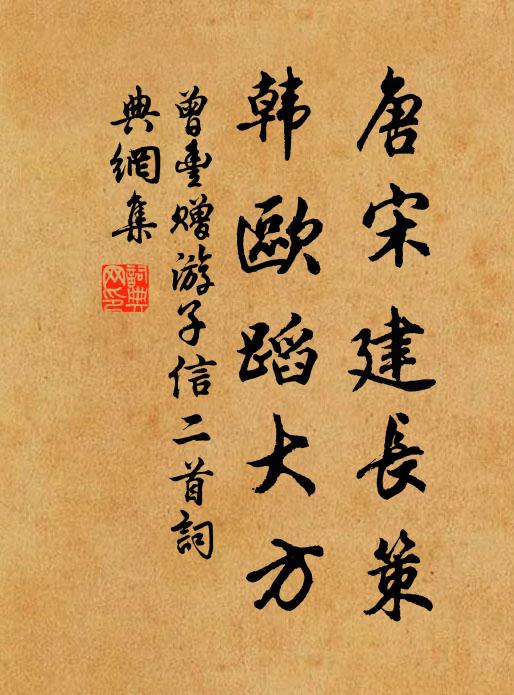 唐宋建長策
韩歐蹈大方
曾豊赠游子信二首詞
典網集
詞典網印